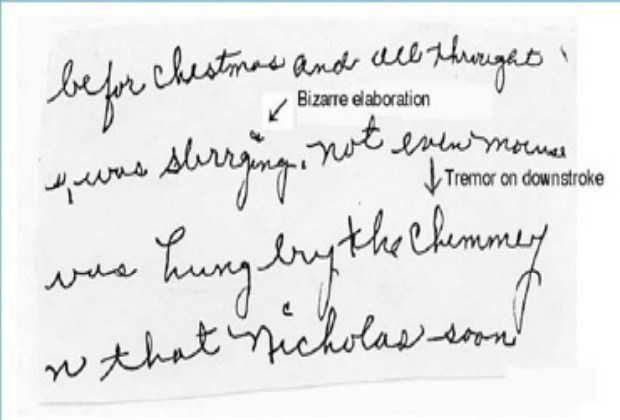 befor chestmas and all throught
Bizarre elaboration
was slirrging. not even mouse
Tremor on downstroke
was hung bry the Chemmey
n that Nicholas soon